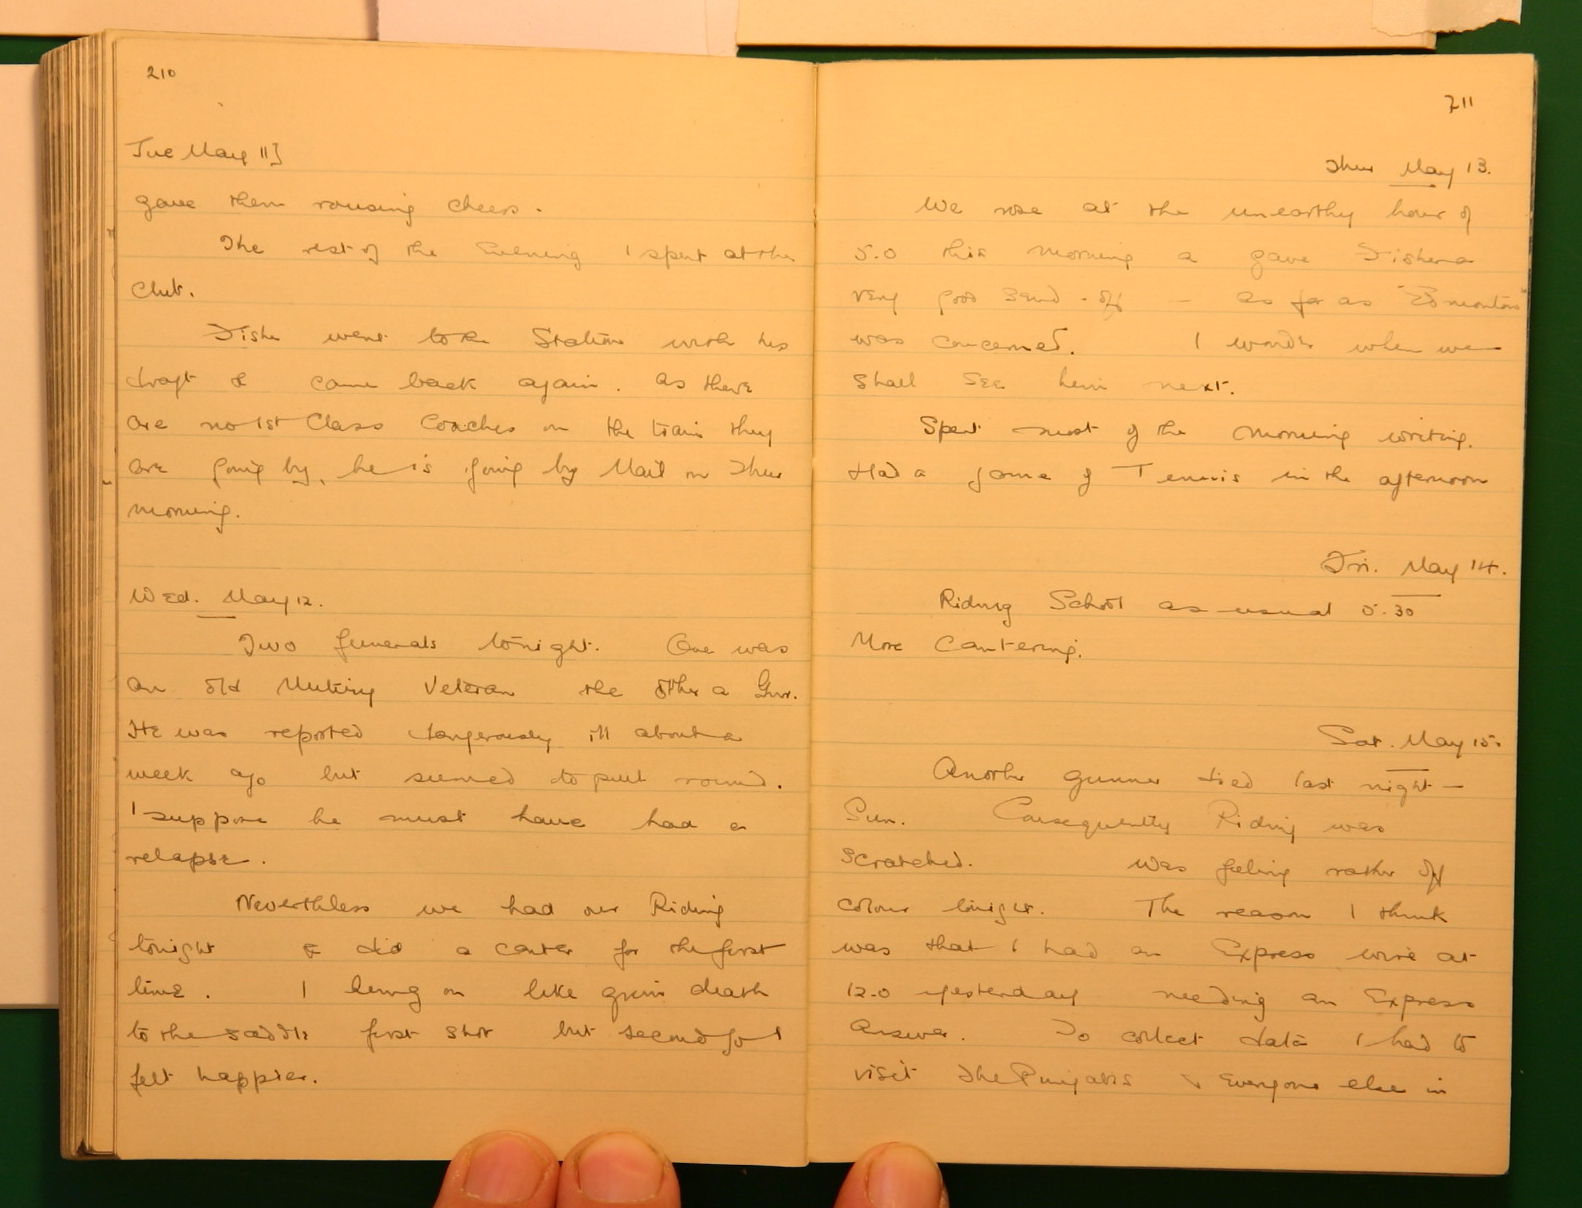 210
Tue May 11]
gave them rousing cheers.
The rest of the Evening I spent at the
Club.
Fisher went to the Station with his
draft & came back again. As there
are no 1st Class Coaches on the train they
are going by, he is going by Mail on Thur
morning.
Wed. May 12.
Two funerals tonight. One was
an old Mutiny Veteran the other a Gnr.
He was reported dangerously ill about a
week ago but seemed to pull round.
I suppose he must have had a
relapse.
Nevertheless we had our Riding
tonight & did a canter for the first
time. I hung on like grim death
to the saddle first shot but second go I
felt happier.
211
Thur May 13.
We rose at the unearthly hour of
5.0 this morning & gave Fisher a
very good send-off — as far as "Edmonton"
was concerned. I wonder when we
shall see him next.
Spent most of the morning writing.
Had a game of Tennis in the afternoon
Fri. May 14.
Riding School as usual 5.30
More Cantering.
Sat. May 15.
Another gunner died last night —
Sun. Consequently Riding was
scratched. Was feeling rather off
colour tonight. The reason I think
was that I had an Express wire at
12.0 yesterday needing an Express
Answer. To collect data I had to
visit The Punjabis & Everyone else in